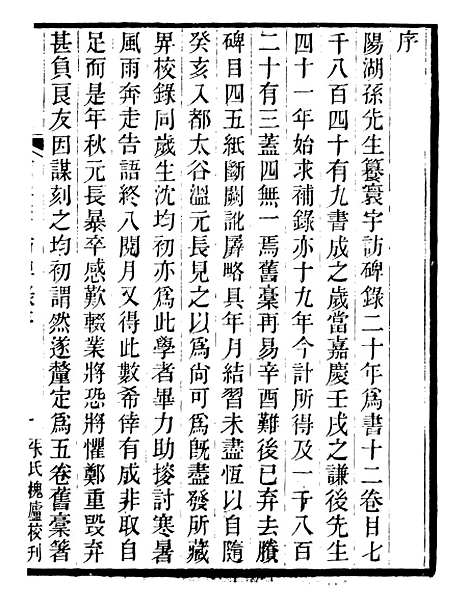 序
陽湖孫先生纂寰宇訪碑錄二十年爲書十二卷目七
千八百四十有九書成之歲當嘉慶壬戌之謙後先生
四十一年始求補錄亦十九年今計所得及一千八百
二十有三蓋四無一焉舊稾再易辛酉難後已弃去賸
碑目四五紙斷闕訛孱略具年月結習未盡恆以自隨
癸亥入都太谷溫元長見之以爲尙可爲旣盡發所藏
畀校錄同歲生沈均初亦爲此學者畢力助掞討寒暑
風雨奔走告語終八閱月又得此數希倖有成非取自
足而是年秋元長暴卒感歎輟業將恐將懼鄭重毀弃
甚負良友因謀刻之均初謂然遂釐定爲五卷舊稾著
一
朱氏槐廬校刊